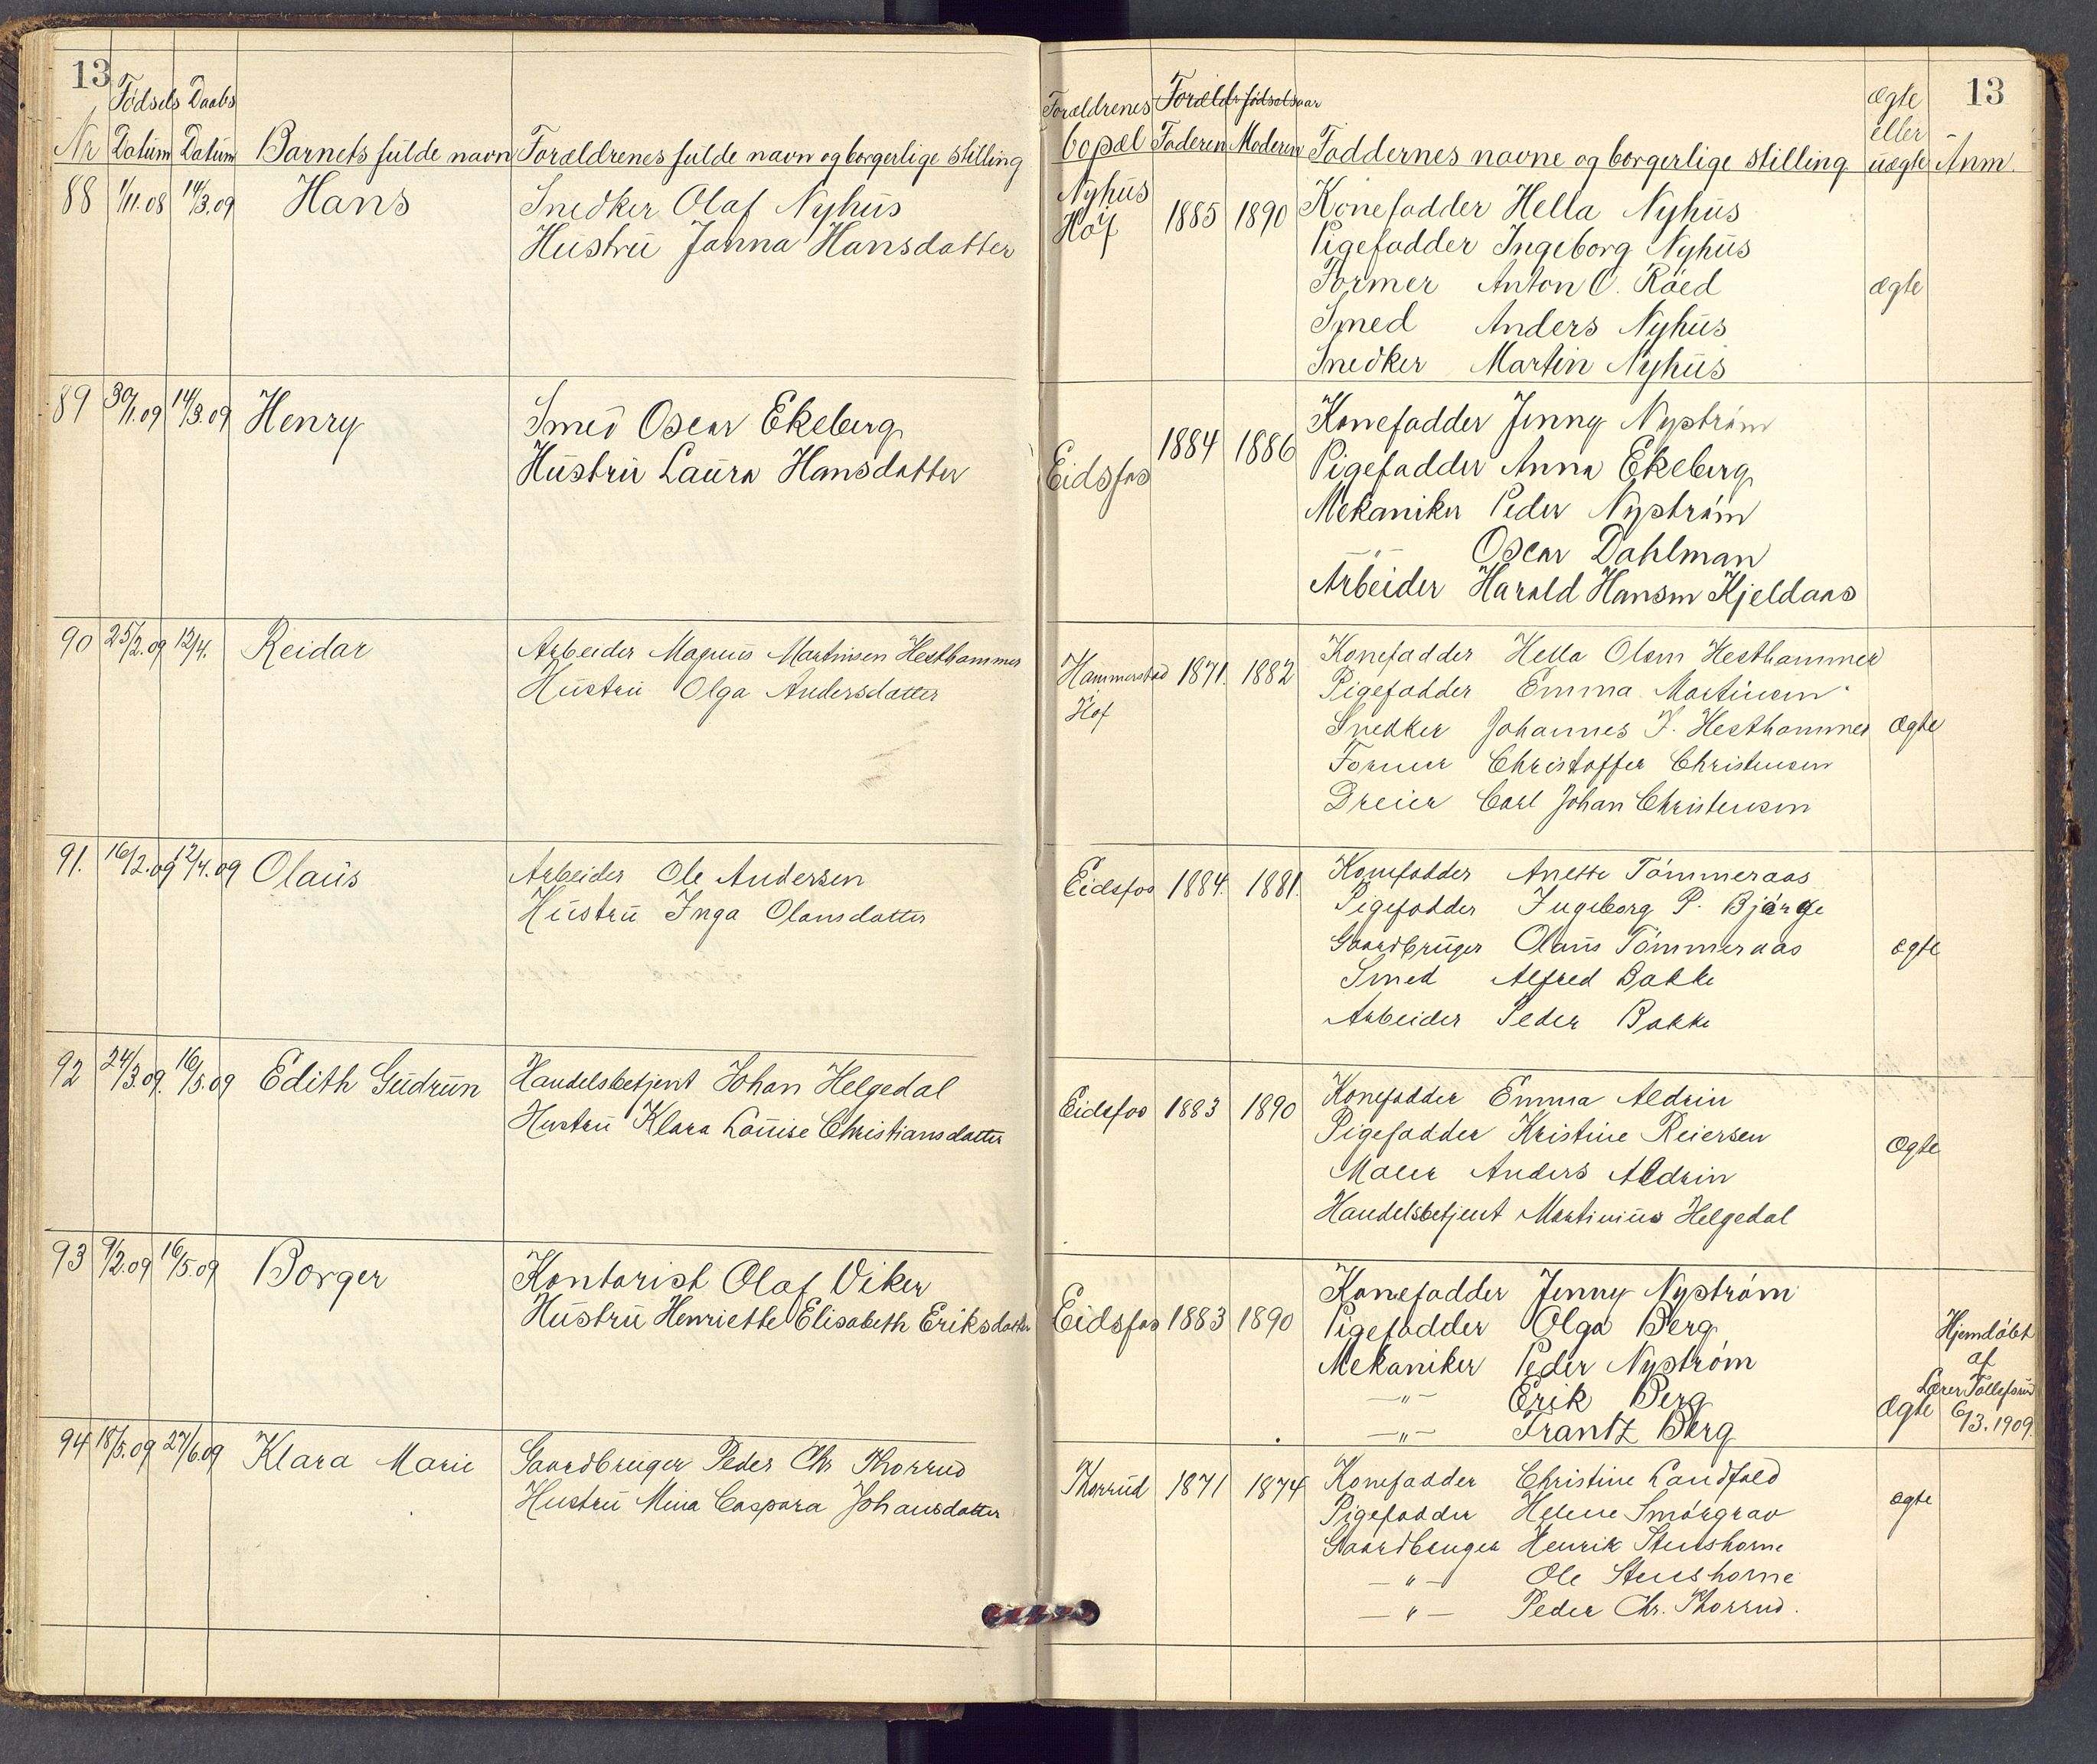 13
Fødsels Daabs
Nr Datum Datum Barnets fulde navn Forældrenes fulde navn og borgerlige stilling
88 1/11.08 14/3.09 Hans Snedker Olaf Nyhus
Hustru Janna Hansdatter
89 30/1.09 14/3.09 Henry Smed Oscar Ekeberg
Hustru Laura Hansdatter
90 25/2.09 12/4. Reidar Arbeider Magnus Martinsen Hesthammer
Hustru Olga Andersdatter
91. 16/2.09 12/4.09 Olaus Arbeider Ole Andersen
Hustru Inga Olausdatter
92 24/3.09. 16/5.09 Edith Gudrun Handelsbetjent Johan Helgedal
Hustru Klara Louise Christiansdatter
93 9/2.09 16/5.09 Borger Kontorist Olaf Viker
Hustru Henriette Elisabeth Eriksdatter
94 18/5.09 27/6.09 Klara Marie Gaardbruger Peder Chr Thorrud
Hustru Mina Caspara Johansdatter
13
Forældrenes Forældr fødselsaar ægte
eller
bopæl Faderen Moderen Faddernes navne og borgerlige stilling uægte Anm.
Nyhus
Hof 1885 1890 Konefadder Hella Nyhus
Pigefadder Ingeborg Nyhus
Former Anton O. Røed ægte
Smed Anders Nyhus
Snedker Martin Nyhus
Eidsfos 1884 1886 Konefadder Jenny Nystrøm
Pigefadder Anna Ekeberg
Mekaniker Peder Nystrøm
—"— Oscar Dahlman
Arbeider Harald Hansen Kjeldaas
Hammerstad 1871. 1882 Konefadder Hella Olsen Hesthammer
Hof Pigefadder Emma Martinsen
Snedker Johannes J. Hesthammer Ægte
Former Christoffer Christensen
Dreier Carl Johan Christensen
Eidsfos 1884. 1881. Konefadder Anette Tømmeraas
Pigefadder Ingeborg P. Bjørge
Gaardbruger Olaus Tømmeraas ægte
Smed Alfred Bakke
Arbeider Peder Bakke
Eidsfos 1883 1890 Konefadder Emma Aldrin
Pigefadder Kristine Reiersen
Maler Anders Aldrin Ægte
Handelsbetjent Martinius Helgedal
Eidsfos 1883 1890 Konefadder Jenny Nystrøm
Pigefadder Olga Berg Hjemdøbt
Mekaniker Peder Nystrøm af
—"— Erik Berg Lærer Tollefsrud
—"— Frantz Berg Ægte 6/3.1909.
Thorrud 1871 1874 Konefadder Christine Landfald
Pigefadder Helene Smørgrav ægte
Gaardbruger Henrik Stenshorne
—"— Ole Stenshorne
—"— Peder Chr. Thorrud.